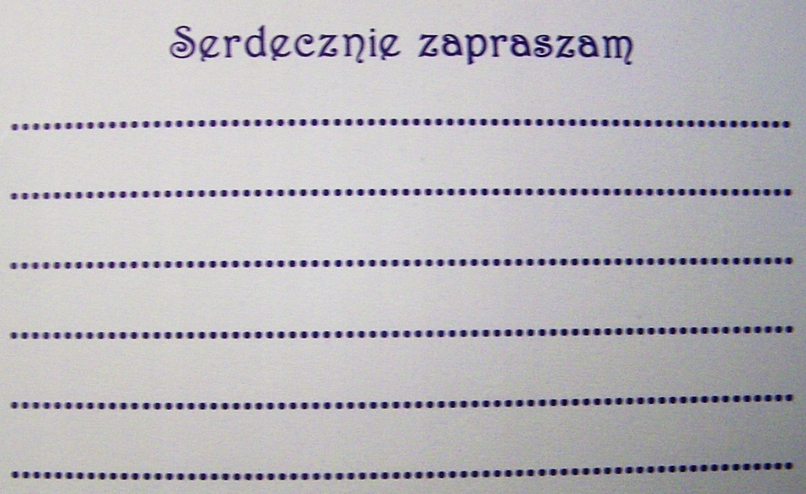 Serdecznie zapraszam